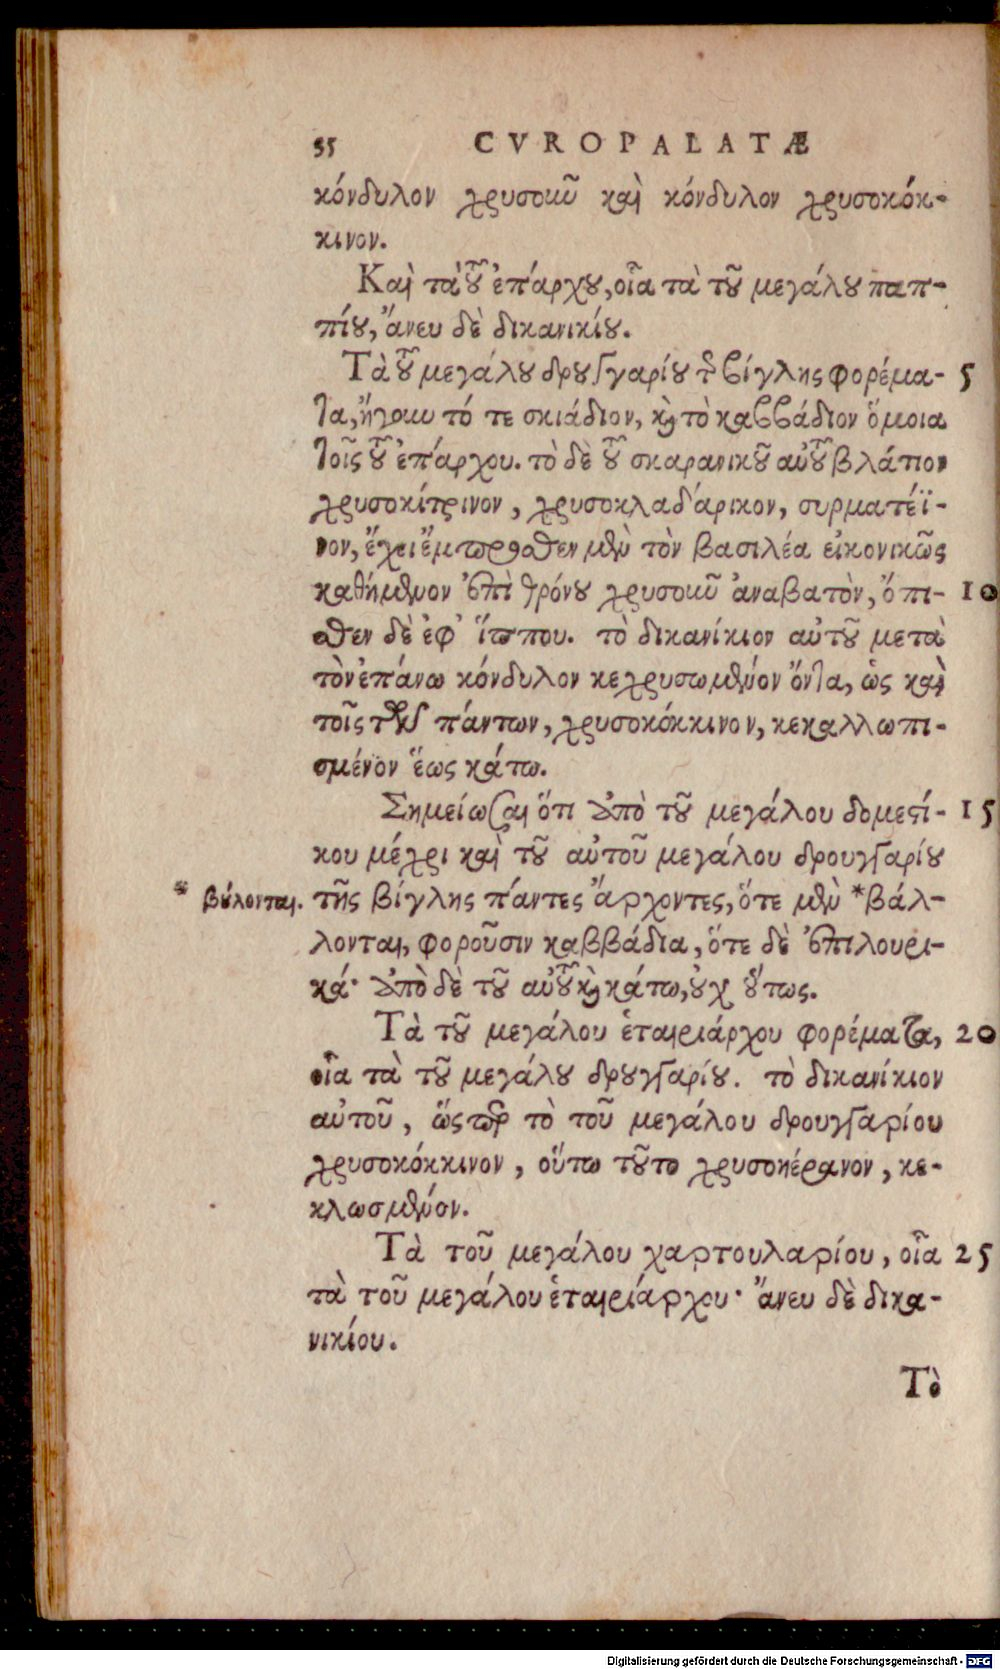 55 CVROPALATÆ
κόνδυλον χρυσοκοῦ καὶ κόνδυλον χρυσοκόκ-
κινον.
Καὶ τὰ τοῦ ἐπάρχου, οἷα τὰ τοῦ μεγάλου παπ-
πίου, ἄνευ δὲ δικανικίου.
Τὰ τοῦ μεγάλου δρουγγαρίου τῆς βίγλης φορέμα- 5
τα, ἤγουν τό τε σκιάδιον, καὶ τὸ καββάδιον ὅμοια
τοῖς τοῦ ἐπάρχου. τὸ δὲ τοῦ σκαρανικοῦ αὐτοῦ βλάτιον
χρυσοκίτρινον, χρυσοκλαδάρικον, συρματέϊ-
νον, ἔχει ἔμπροσθεν μὲν τὸν βασιλέα εἰκονικῶς
καθήμενον ἐπὶ θρόνου χρυσοκοῦ ἀναβατὸν, ὄπι- 10
σθεν δὲ ἐφ' ἵππου. τὸ δικανίκιον αὐτοῦ μετὰ
τὸν ἐπάνω κόνδυλον κεχρυσωμένον ὄντα, ὡς καὶ
τοῖς τῶν πάντων, χρυσοκόκκινον, κεκαλλωπι-
σμένον ἕως κάτω.
Σημείωσαι ὅτι ἀπὸ τοῦ μεγάλου δομεστί- 15
κου μέχρι καὶ τοῦ αὐτοῦ μεγάλου δρουγγαρίου
* βούλονται. τῆς βίγλης πάντες ἄρχοντες, ὅτε μὲν *βάλ-
λονται, φοροῦσιν καββάδια, ὅτε δὲ ἐπιλουρι-
κά· ἀπὸ δὲ τοῦ αὐτοῦ καὶ κάτω, οὐχ οὕτως.
Τὰ τοῦ μεγάλου ἑταιριάρχου φορέματα, 20
οἷα τὰ τοῦ μεγάλου δρουγγαρίου. τὸ δικανίκιον
αὐτοῦ, ὥσπερ τὸ τοῦ μεγάλου δρουγγαρίου
χρυσοκόκκινον, οὕτω τοῦτο χρυσοκέρανον, κε-
κλωσμένον.
Τὰ τοῦ μεγάλου χαρτουλαρίου, οἷα 25
τὰ τοῦ μεγάλου ἑταιριάρχου· ἄνευ δὲ δικα-
νικίου.
Τὸ
Digitalisierung gefördert durch die Deutsche Forschungsgemeinschaft - DFG